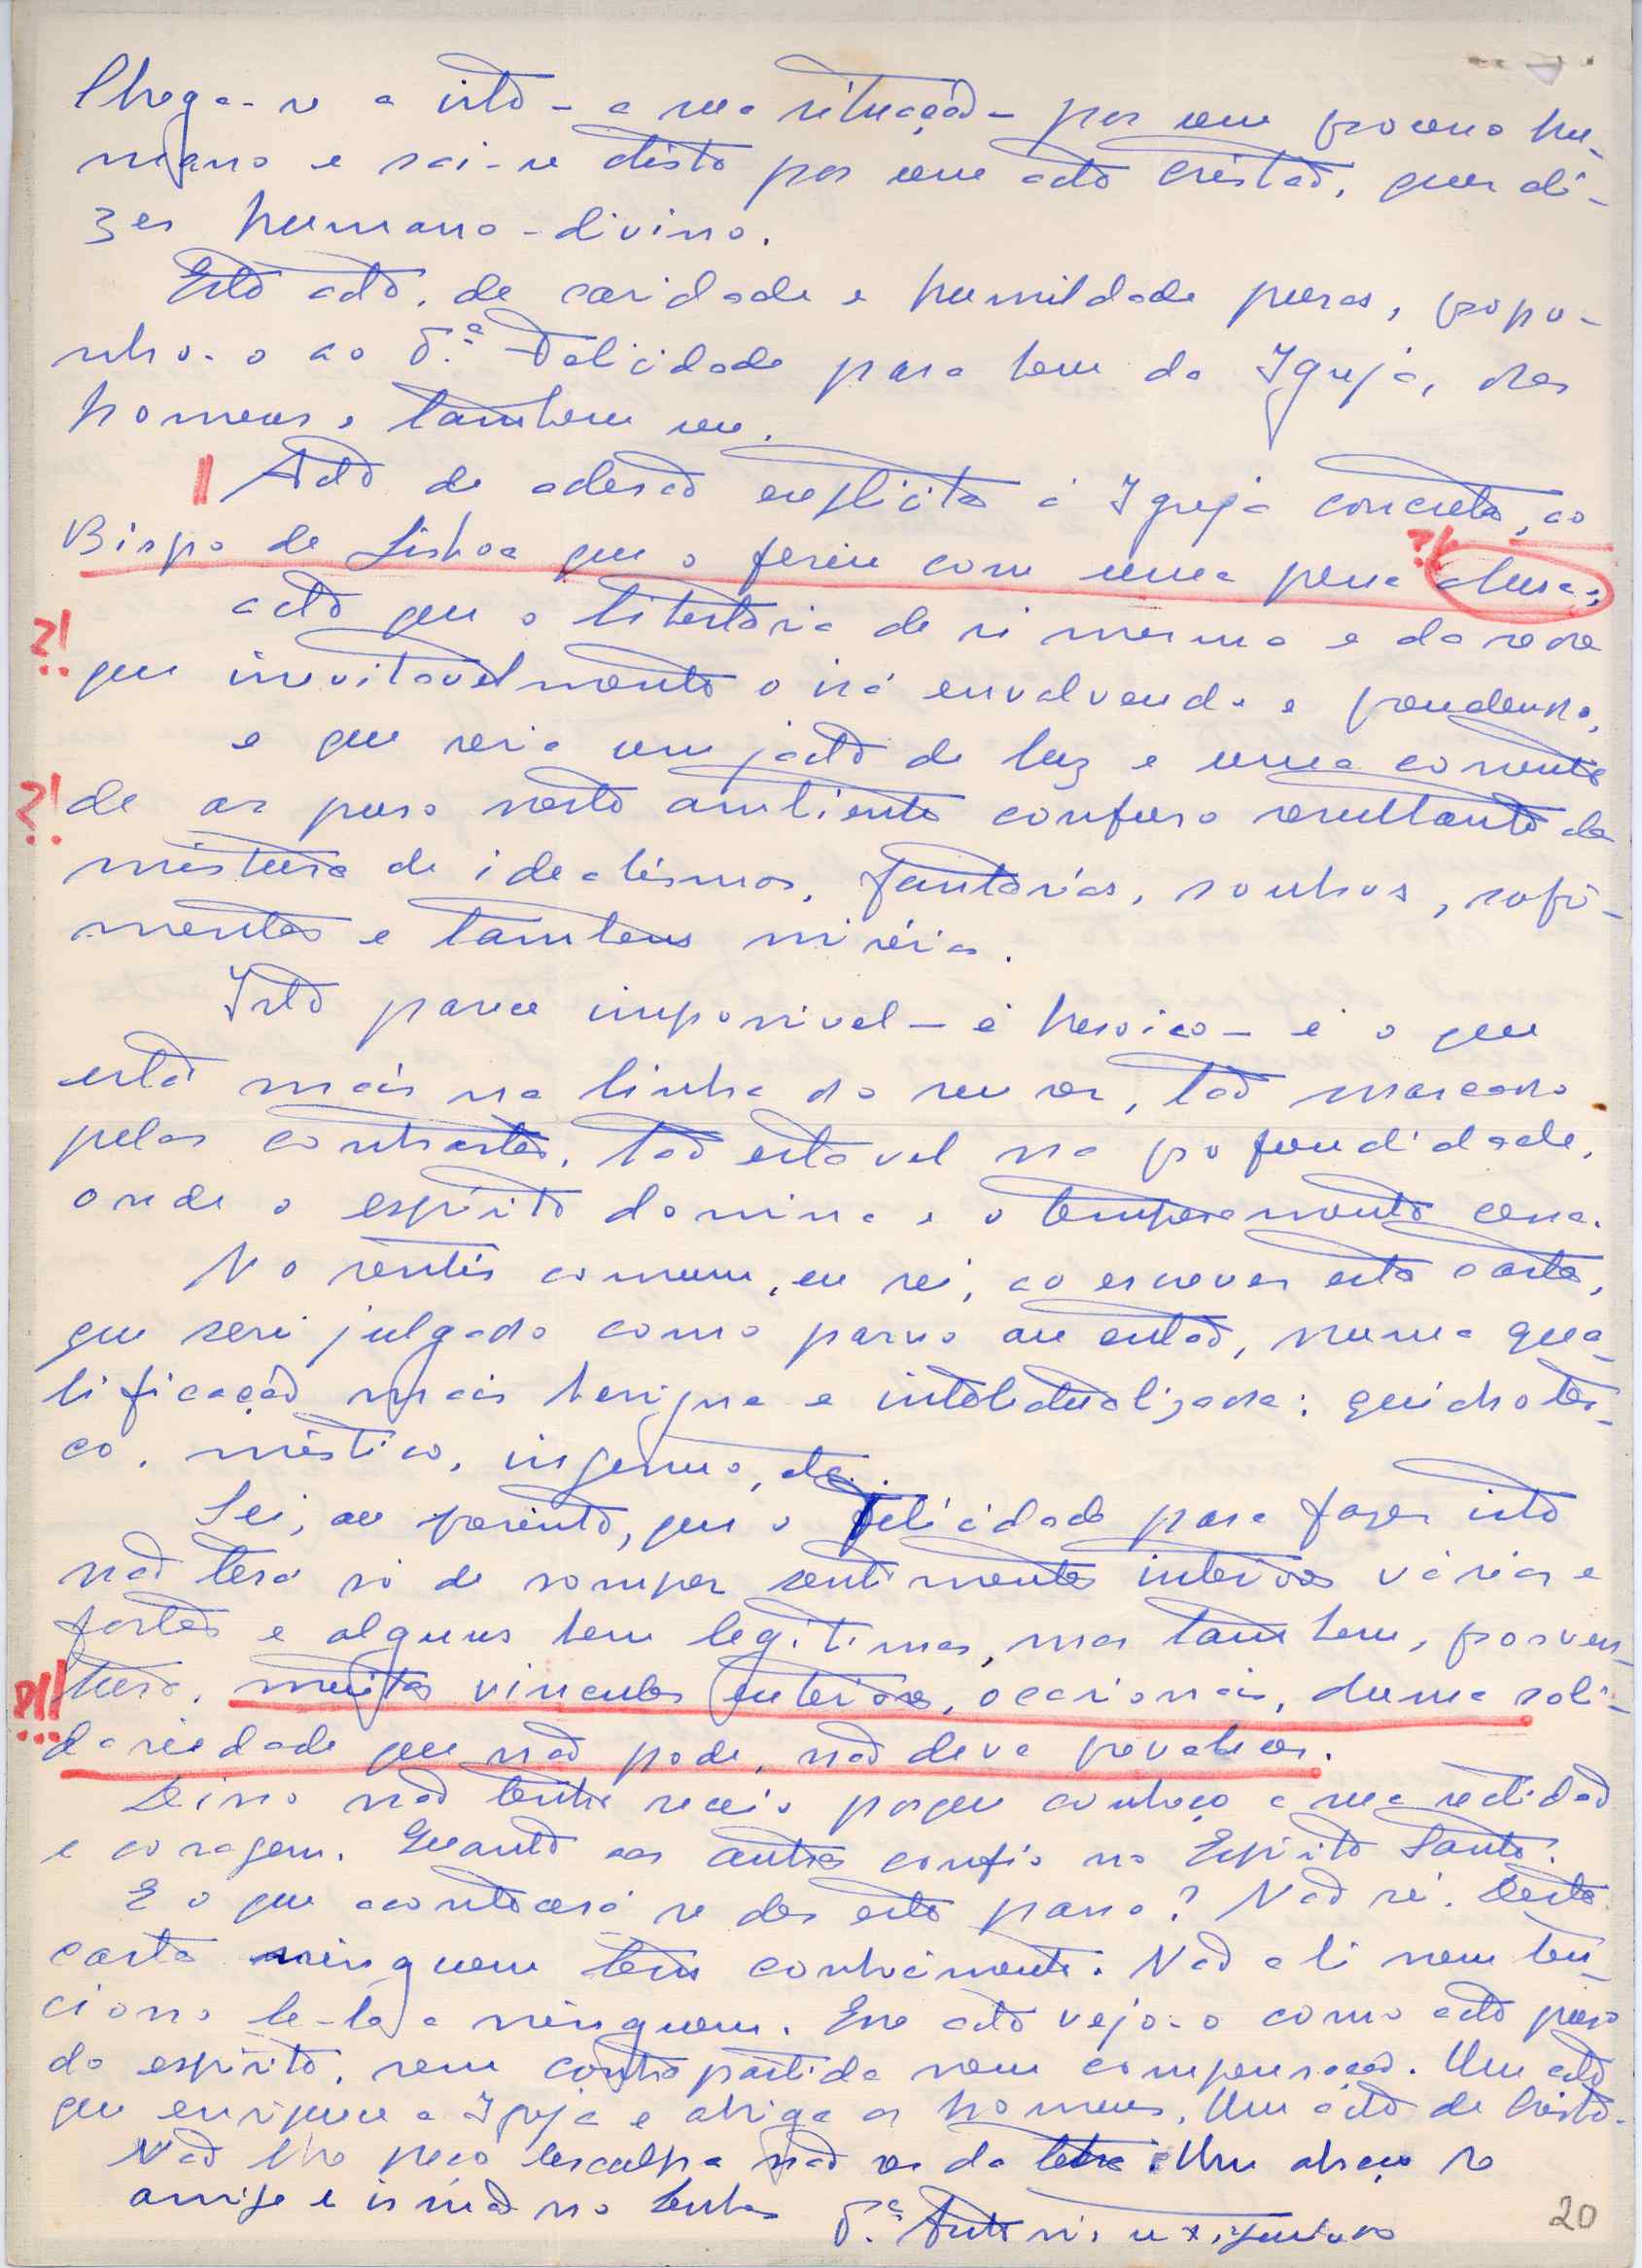 Chega-se a isto - a sua situação - por um processo hu-
mano e sai-se disto por um acto cristão, quer di-
zer humano-divino.
Este acto, de caridade e humildade puras, propo-
nho-o ao P.e Felicidade para bem da Igreja, dos
homens e tambem seu.
Acto de adesão explicita à Igreja concreta, ao
Bispo de Lisboa que o feriu com uma pena dura;
?!
acto que o libertaria de si mesmo e da rede
?! que inevitavelmente o irá envolvendo e prendendo,
e que seria um jacto de luz e uma corrente
?! de ar puro neste ambiente confuso resultante da
mistura de idealismos, fantasias, sonhos, sofri-
mentos e tambem miséria.
Isto parece impossivel - é heroico - é o que
está mais na linha do seu ser, tão marcado
pelos contrastes, tão estavel na profundidade,
onde o espirito domina e o temperamento cessa.
No sentir comum, eu sei, ao escrever esta carta,
que serei julgado como parvo ou então, numa qua-
lificação mais benigna e intelectualizada: quichotes-
co, mistico, ingenuo, etc.
Sei, ou pressinto, que o Felicidade para fazer isto
não terá só de romper sentimentos interiores vários e
fortes e alguns bem legitimos, mas tambem, porven-
?!! tura, muitos vinculos exteriores, ocasionais, duma soli-
dariedade que não pode, não deve prevalecer.
Disso não tenho receio porque conheço a sua rectidão
e coragem. Quanto aos outros confio no Espirito Santo.
E o que acontecerá se der este passo? Não sei. Desta
carta ninguem tem conhecimento. Não a li nem ten-
ciono le-la a ninguem. Esse acto vejo-o como acto puro
do espirito, sem contrapartida nem compensação. Um acto
que enriquece a Igreja e obriga os homens. Um acto de Cristo.
Não lhe peço desculpa a não ser da letra. Um abraço do
amigo e irmão no Senhor P.e
20